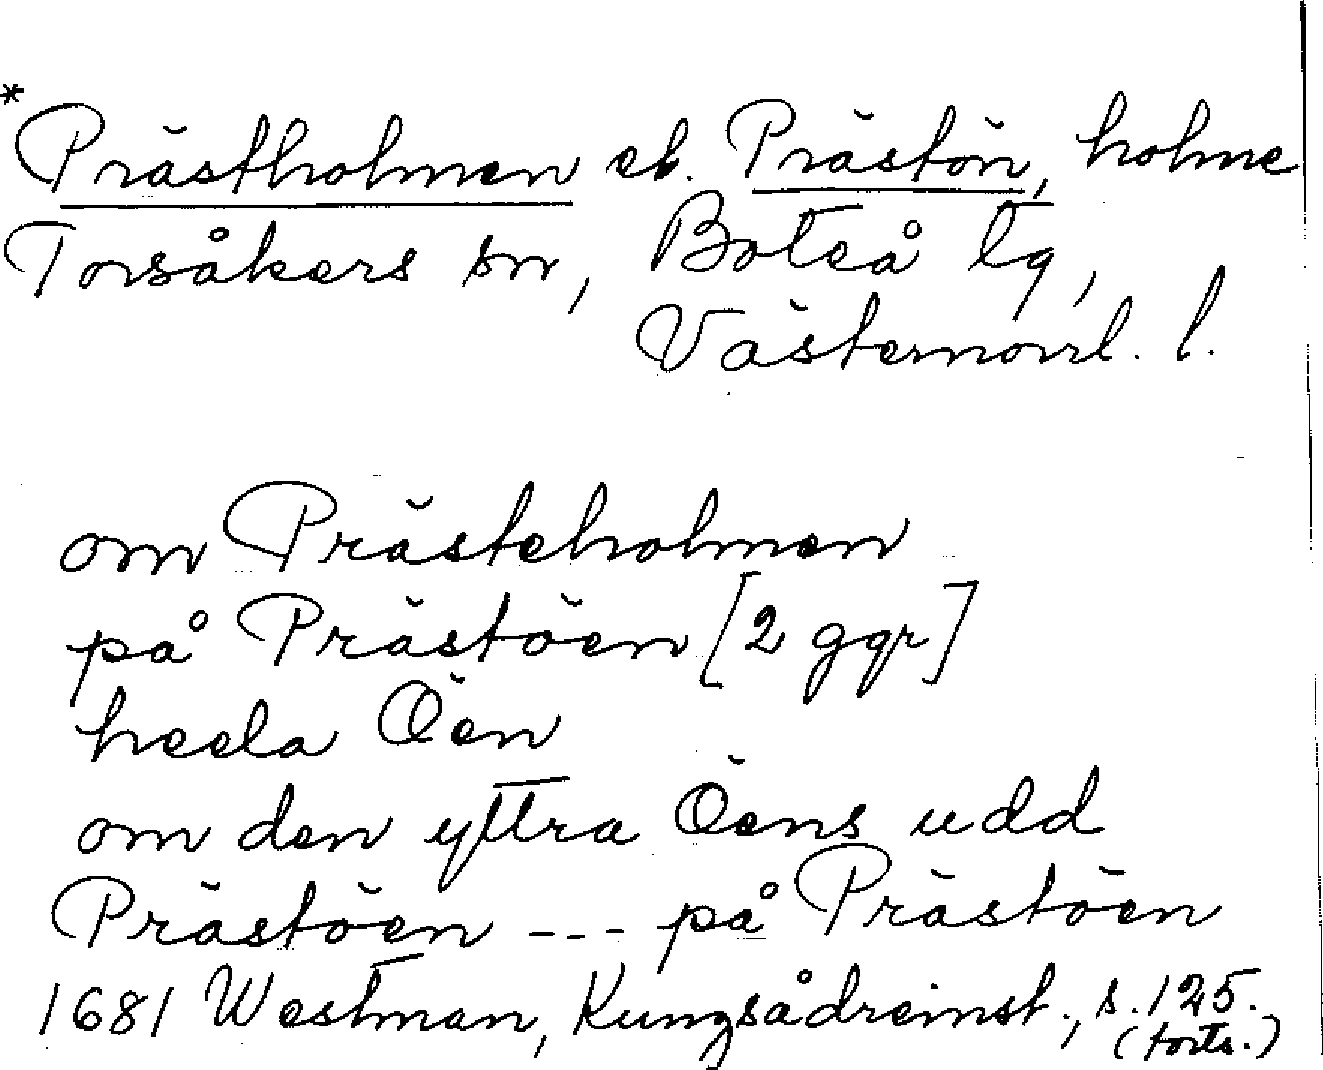 *Prästholmen el. Prästön, holme
Torsåkers sn, Boteå tg,
Västernorrl. l.
om Prästeholmen
på Prästöen [2 ggr]
heela Öen
om den yttra Öens udd
Prästöen --- på Prästöen
1681 Westman, Kungsådreinst., s. 125.
(forts.)